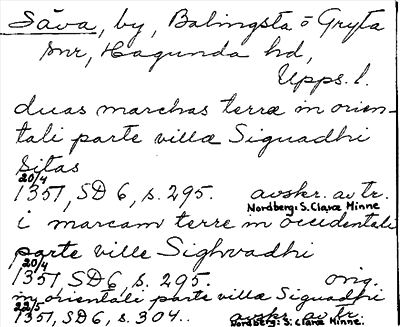 Sāva, by, Balingsta o Gryta
snr, Hagunda hd,
Upps. l.
duas marchas terræ in orien-
tali parte villæ Siguadhi
sitas
20/4
1351, SD 6, s. 295. avskr. av tr.
Nordberg: S. Claræ Minne
i marcam terre in occidentali
parte ville Sighvadhi
20/4
1351, SD 6, s. 295. orig.
in orientali parte villæ Siguadhi
22/5
1351, SD 6, s. 304. avskr. av tr.
Nordberg: S. Claræ Minne.